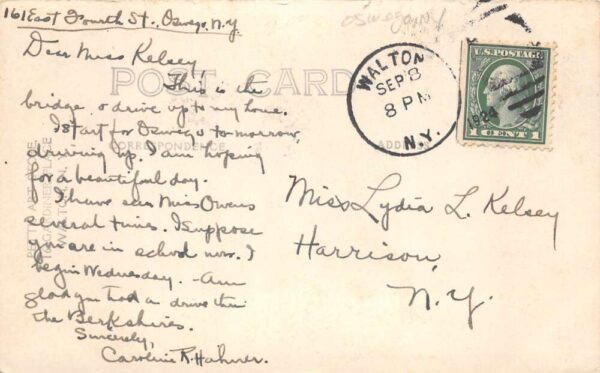 161 East Fourth St., Oswego, N.Y.
Oswego NY
Dear Miss Kelsey,
POST CARD
This is the
bridge & drive up to my home.
I start for Oswego tomorrow,
CORRESPONDENCE
ADDRESS
driving by. I am hoping
for a beautiful day.
I have seen Miss Owens
several times. I suppose
you are in school now. I
begin Wednesday. Am
glad you had a drive thru
the Berkshires.
Sincerely,
Caroline R. Hahner.
WALTON
SEP 8
8 PM
N.Y.
1924
U.S. POSTAGE
1 CENT 1
Miss Lydia L. Kelsey
Harrison,
N.Y.
WALTON, N.Y.